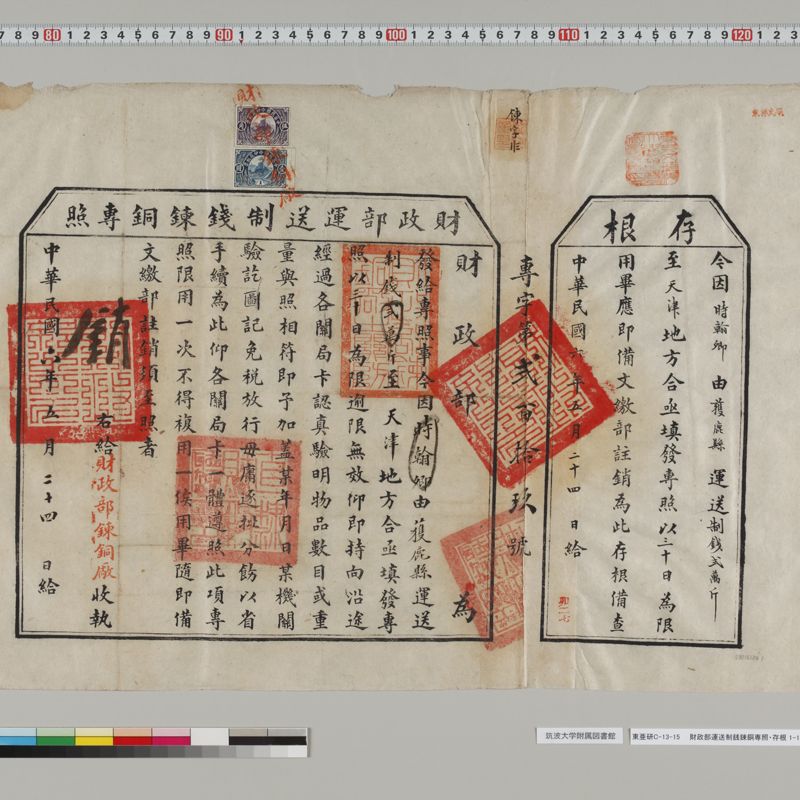 存根
今因時翰卿由獲鹿縣運送制錢弍萬斤
至天津地方合亟填發專照以三十日為限
用畢應即備文繳部註銷為此存根備查
中華民國六年五月二十四日給
專字第弍百拾玖號
財政部運送制錢鍊銅專照
財政部為
發給專照事今因時翰卿由獲鹿縣運送
制錢弍萬斤至天津地方合亟填發專
照以三十日為限逾限無效仰即持向沿途
經過各關局卡認真驗明物品數目或重
量與照相符即予加蓋某年月日某機關
驗訖圖記免税放行毋庸逐批分飭以省
手續為此仰各關局卡一體遵照此項專
照限用一次不得複用一俟用畢隨即備
文繳部註銷須至照者
右給財政部鍊銅廠收執
中華民國六年五月二十四日給
銷
筑波大学附属図書館
東亜研C-13-15 財政部運送制銭錬銅専照・存根 1-1